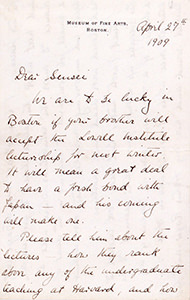 MUSEUM OF FINE ARTS,
BOSTON.
April 27th
1909
Dear Sensei
We are to be lucky in
Boston if your brother will
accept the Lowell Institute
lectureship for next winter.
It will mean a great deal
to have a fresh bond with
Japan — and his coming
will make one.
Please tell him about the
lectures how they rank
above any of the undergraduate
teaching at Harvard, and how